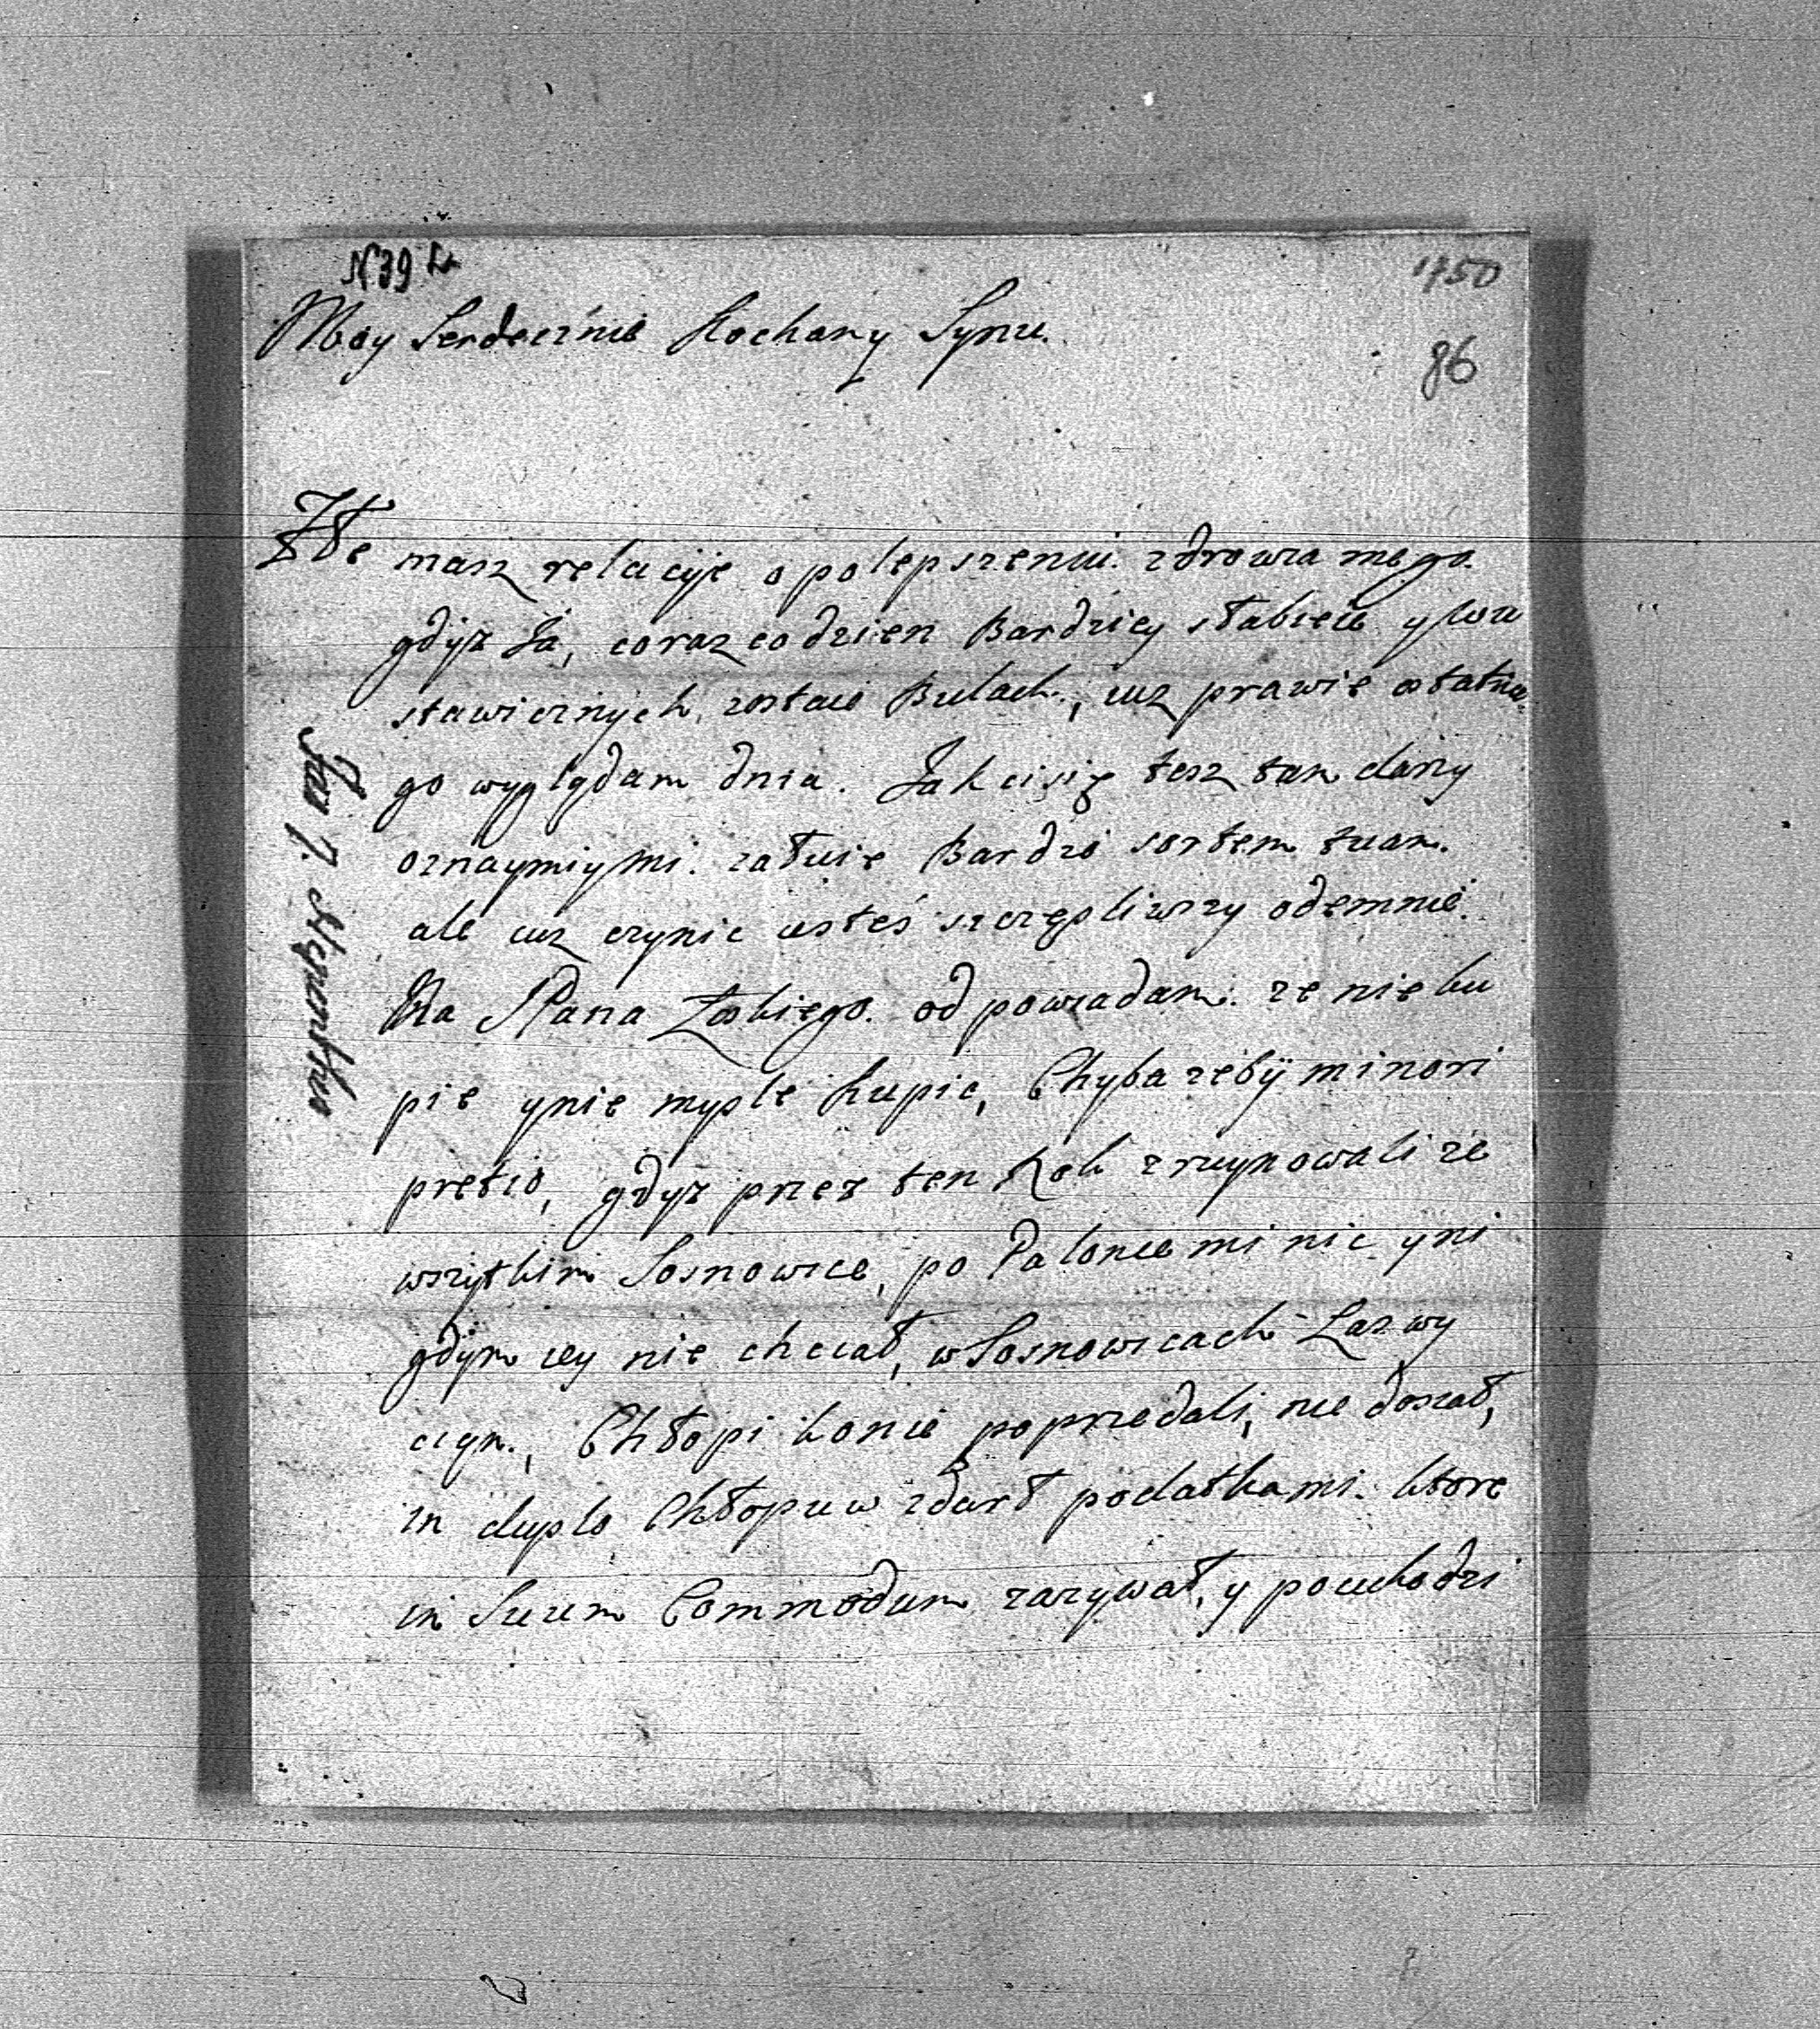 N 39
1750
86
Moy Serdecznie Kochany Synu.
Złe masz relacyje o polepszeniu zdrowia mego.
gdyz Ja, coraz co dzien Bardziey słabieie y w u
stawicznych zostaie Bulach, iuz prawie ostatnie-
go wyglądam dnia. Jak ci się tesz tam
oznaymiy mi. załuie Bardzo sortem tuam.
ale iuz czynic iesteś szczęsliwszy odemnie.
Na Pana odpowiadam. ze nie ku
pie y nie mysle kupic, Chyba zeby minori
pretio, gdyz przez ten Rok zruynowali ze
wszytkim Sosnowice, po Paloncie mi nic y ni
gdym iey nie chciał, w Sosnowicach
Chłopi konie poprzedali, nie dosiał,
in duplo Chłopuw zdarł podatkami. ktore
in Suum Commodum zazywał, y
Jan J.